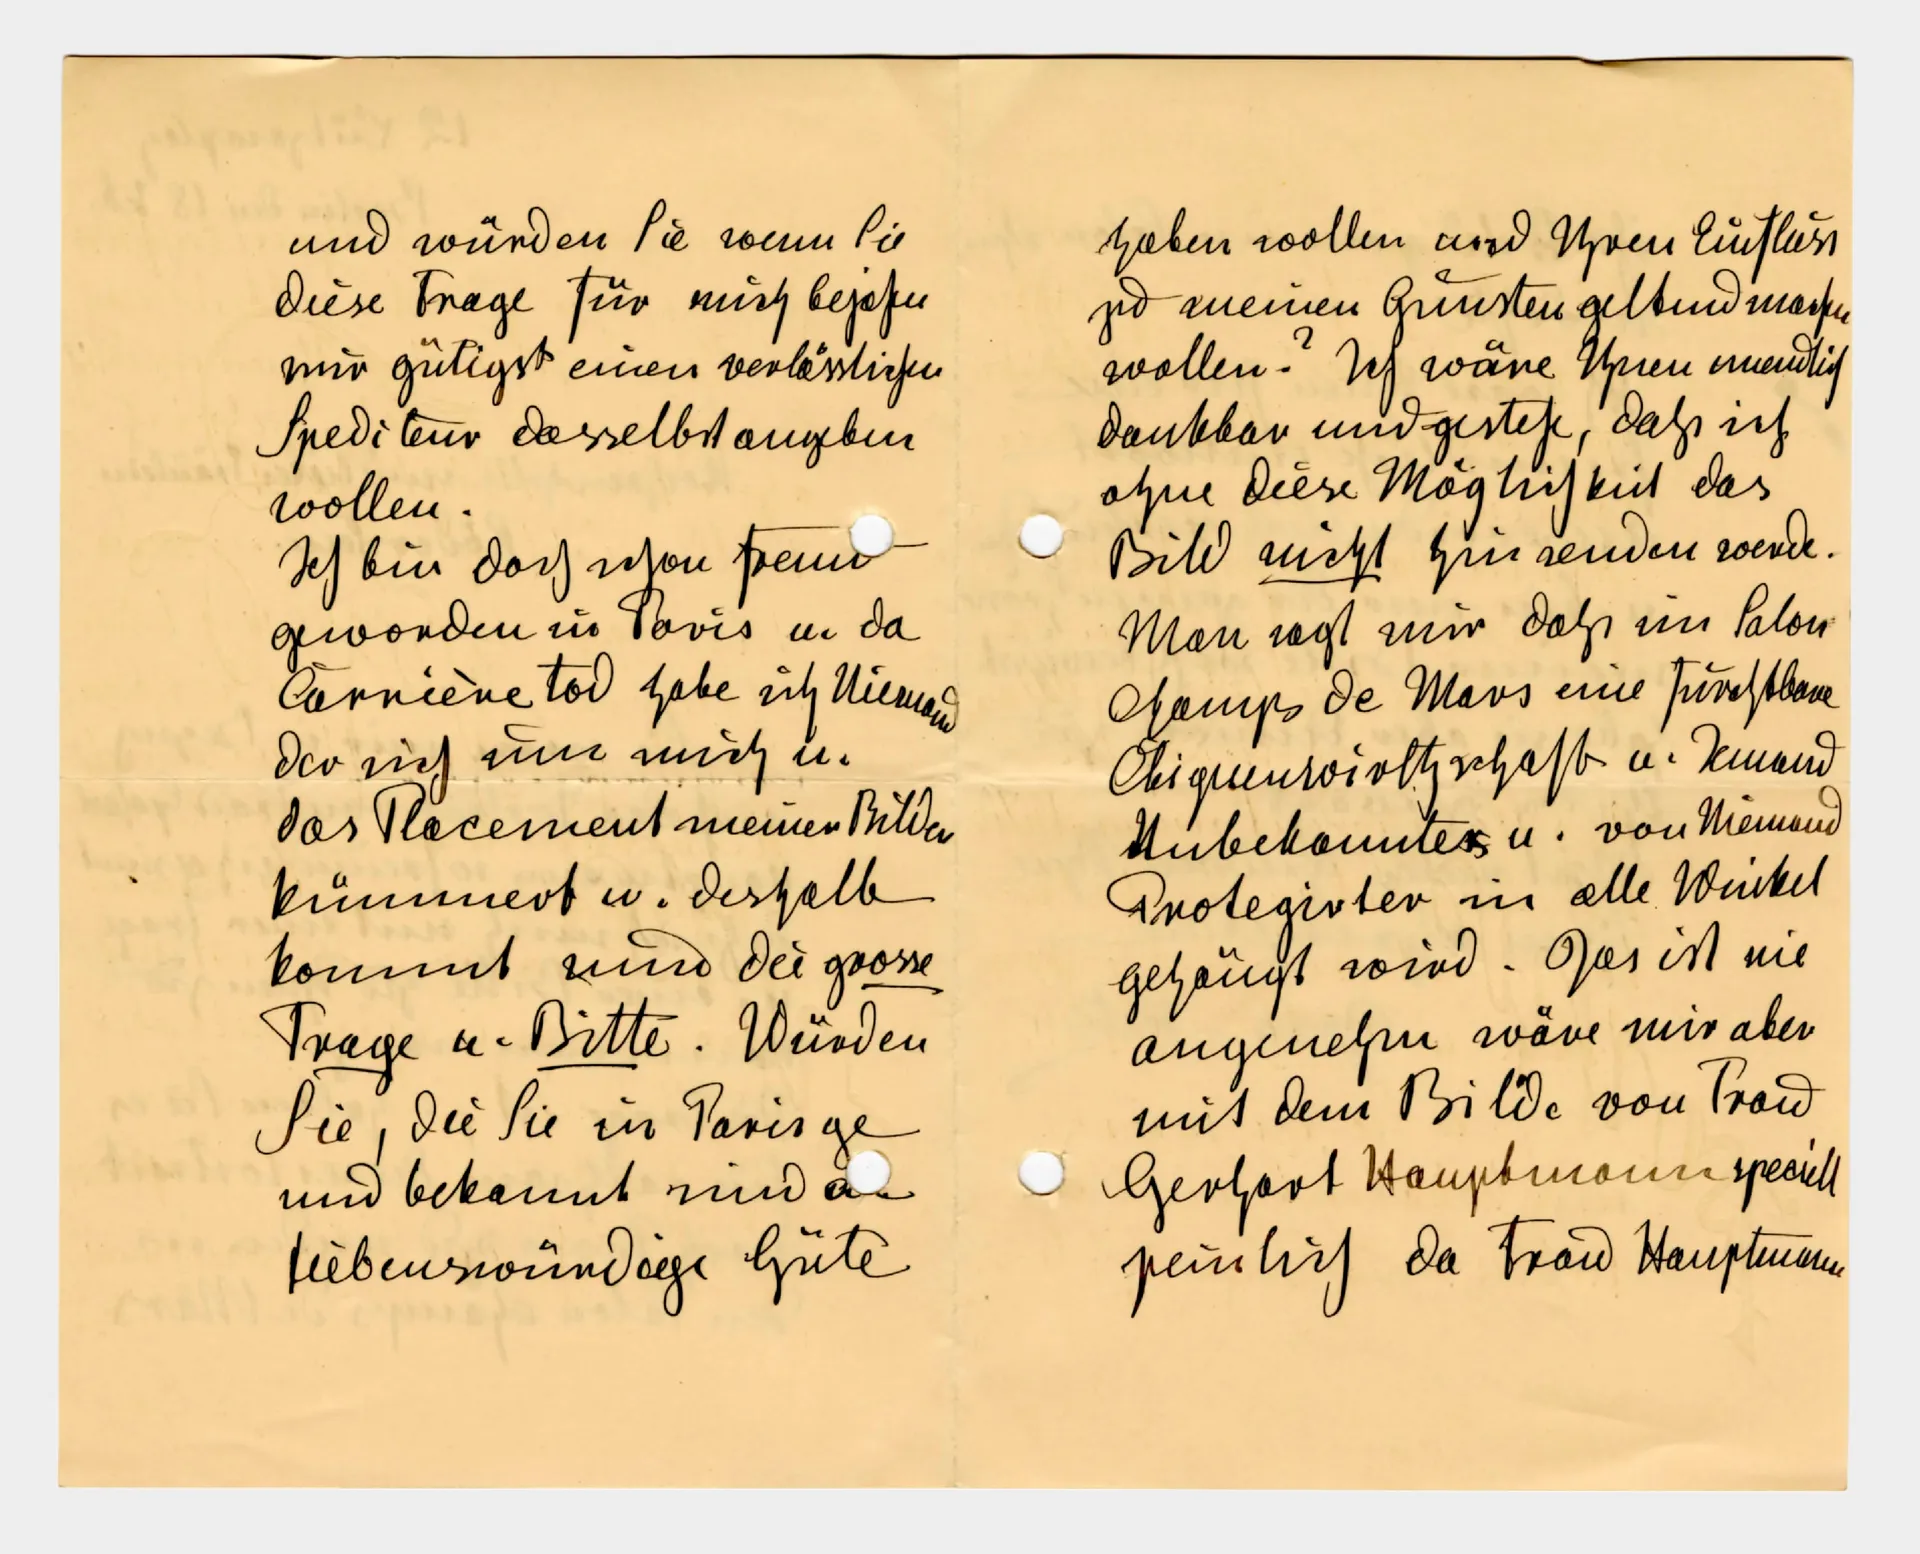 und würden Sie wenn Sie
diese Frage für mich bejahen
mir gütigst einen verlässlichen
Spediteur dasselbst angeben
wollen.
Ich bin doch schon fremd
geworden in Paris u. da
Carrière tod habe ich Niemand
der sich um mich u.
das Placement meiner Bilder
kümmert u. deshalb
kommt nun die grosse
Frage u. Bitte. Würden
Sie, die Sie in Paris ge
und bekannt sind die
liebenswürdige Güte
haben wollen und Ihren Einfluss
zu meinen Gunsten geltend machen
wollen? Ich wäre Ihnen unendlich
dankbar und gestehe, dass ich
ohne diese Möglichkeit das
Bild nicht hinsenden werde.
Man sagt mir dass im Salon
Champs de Mars eine furchtbare
Cliquenwirthschaft u. Jemand
Unbekannter u. von Niemand
Protegirter in alle Winkel
gehängt wird. Das ist nie
angenehm wäre mir aber
mit dem Bilde von Frau
Gerhart Hauptmann speciell
peinlich da Frau Hauptmann